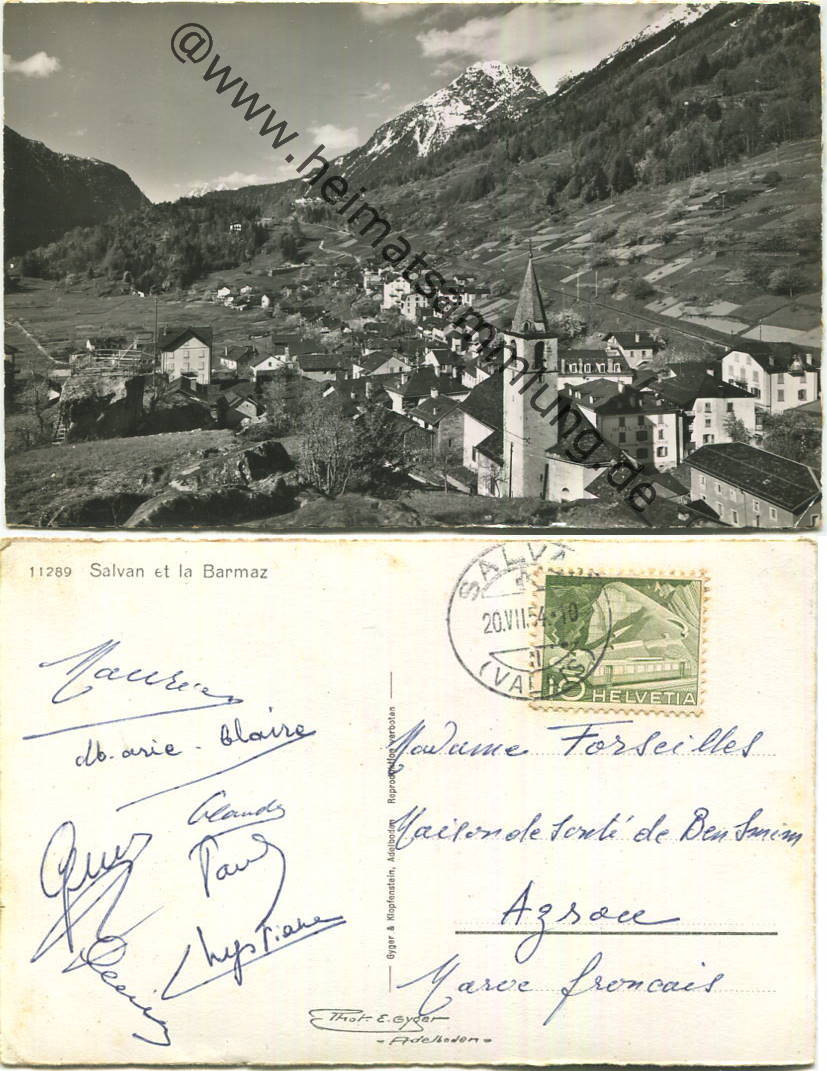 @www.heimatsammlung.de
11289 Salvan et la Barmaz
SALVAN
20.VII.54.-10
(VALAIS)
10 HELVETIA
Maurice
Marie-Claire
Claude
Paul
Chrystiane
Madame Forseilles
Maison de Santé de Ben Smim
Azrou
Maroc français
Gyger & Klopfenstein, Adelboden Reproduktion verboten
Phot. E. Gyger
- Adelboden -